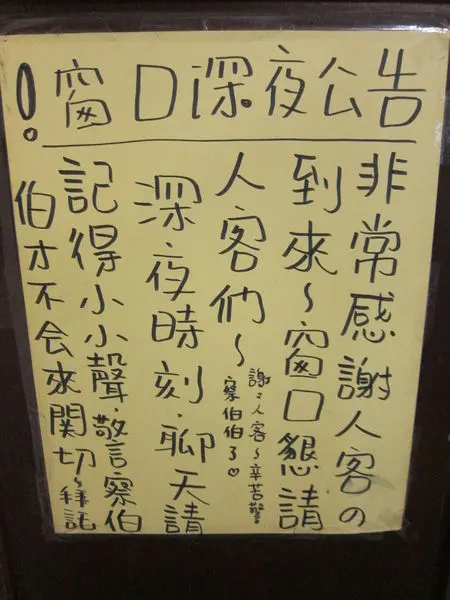 !窗口深夜公告
非常感謝人客の
到來～窗口懇請
人客們～
謝々人客～辛苦警
察伯伯了♡
深夜時刻.聊天請
記得小小聲.警察伯
伯才不会來関切~拜託